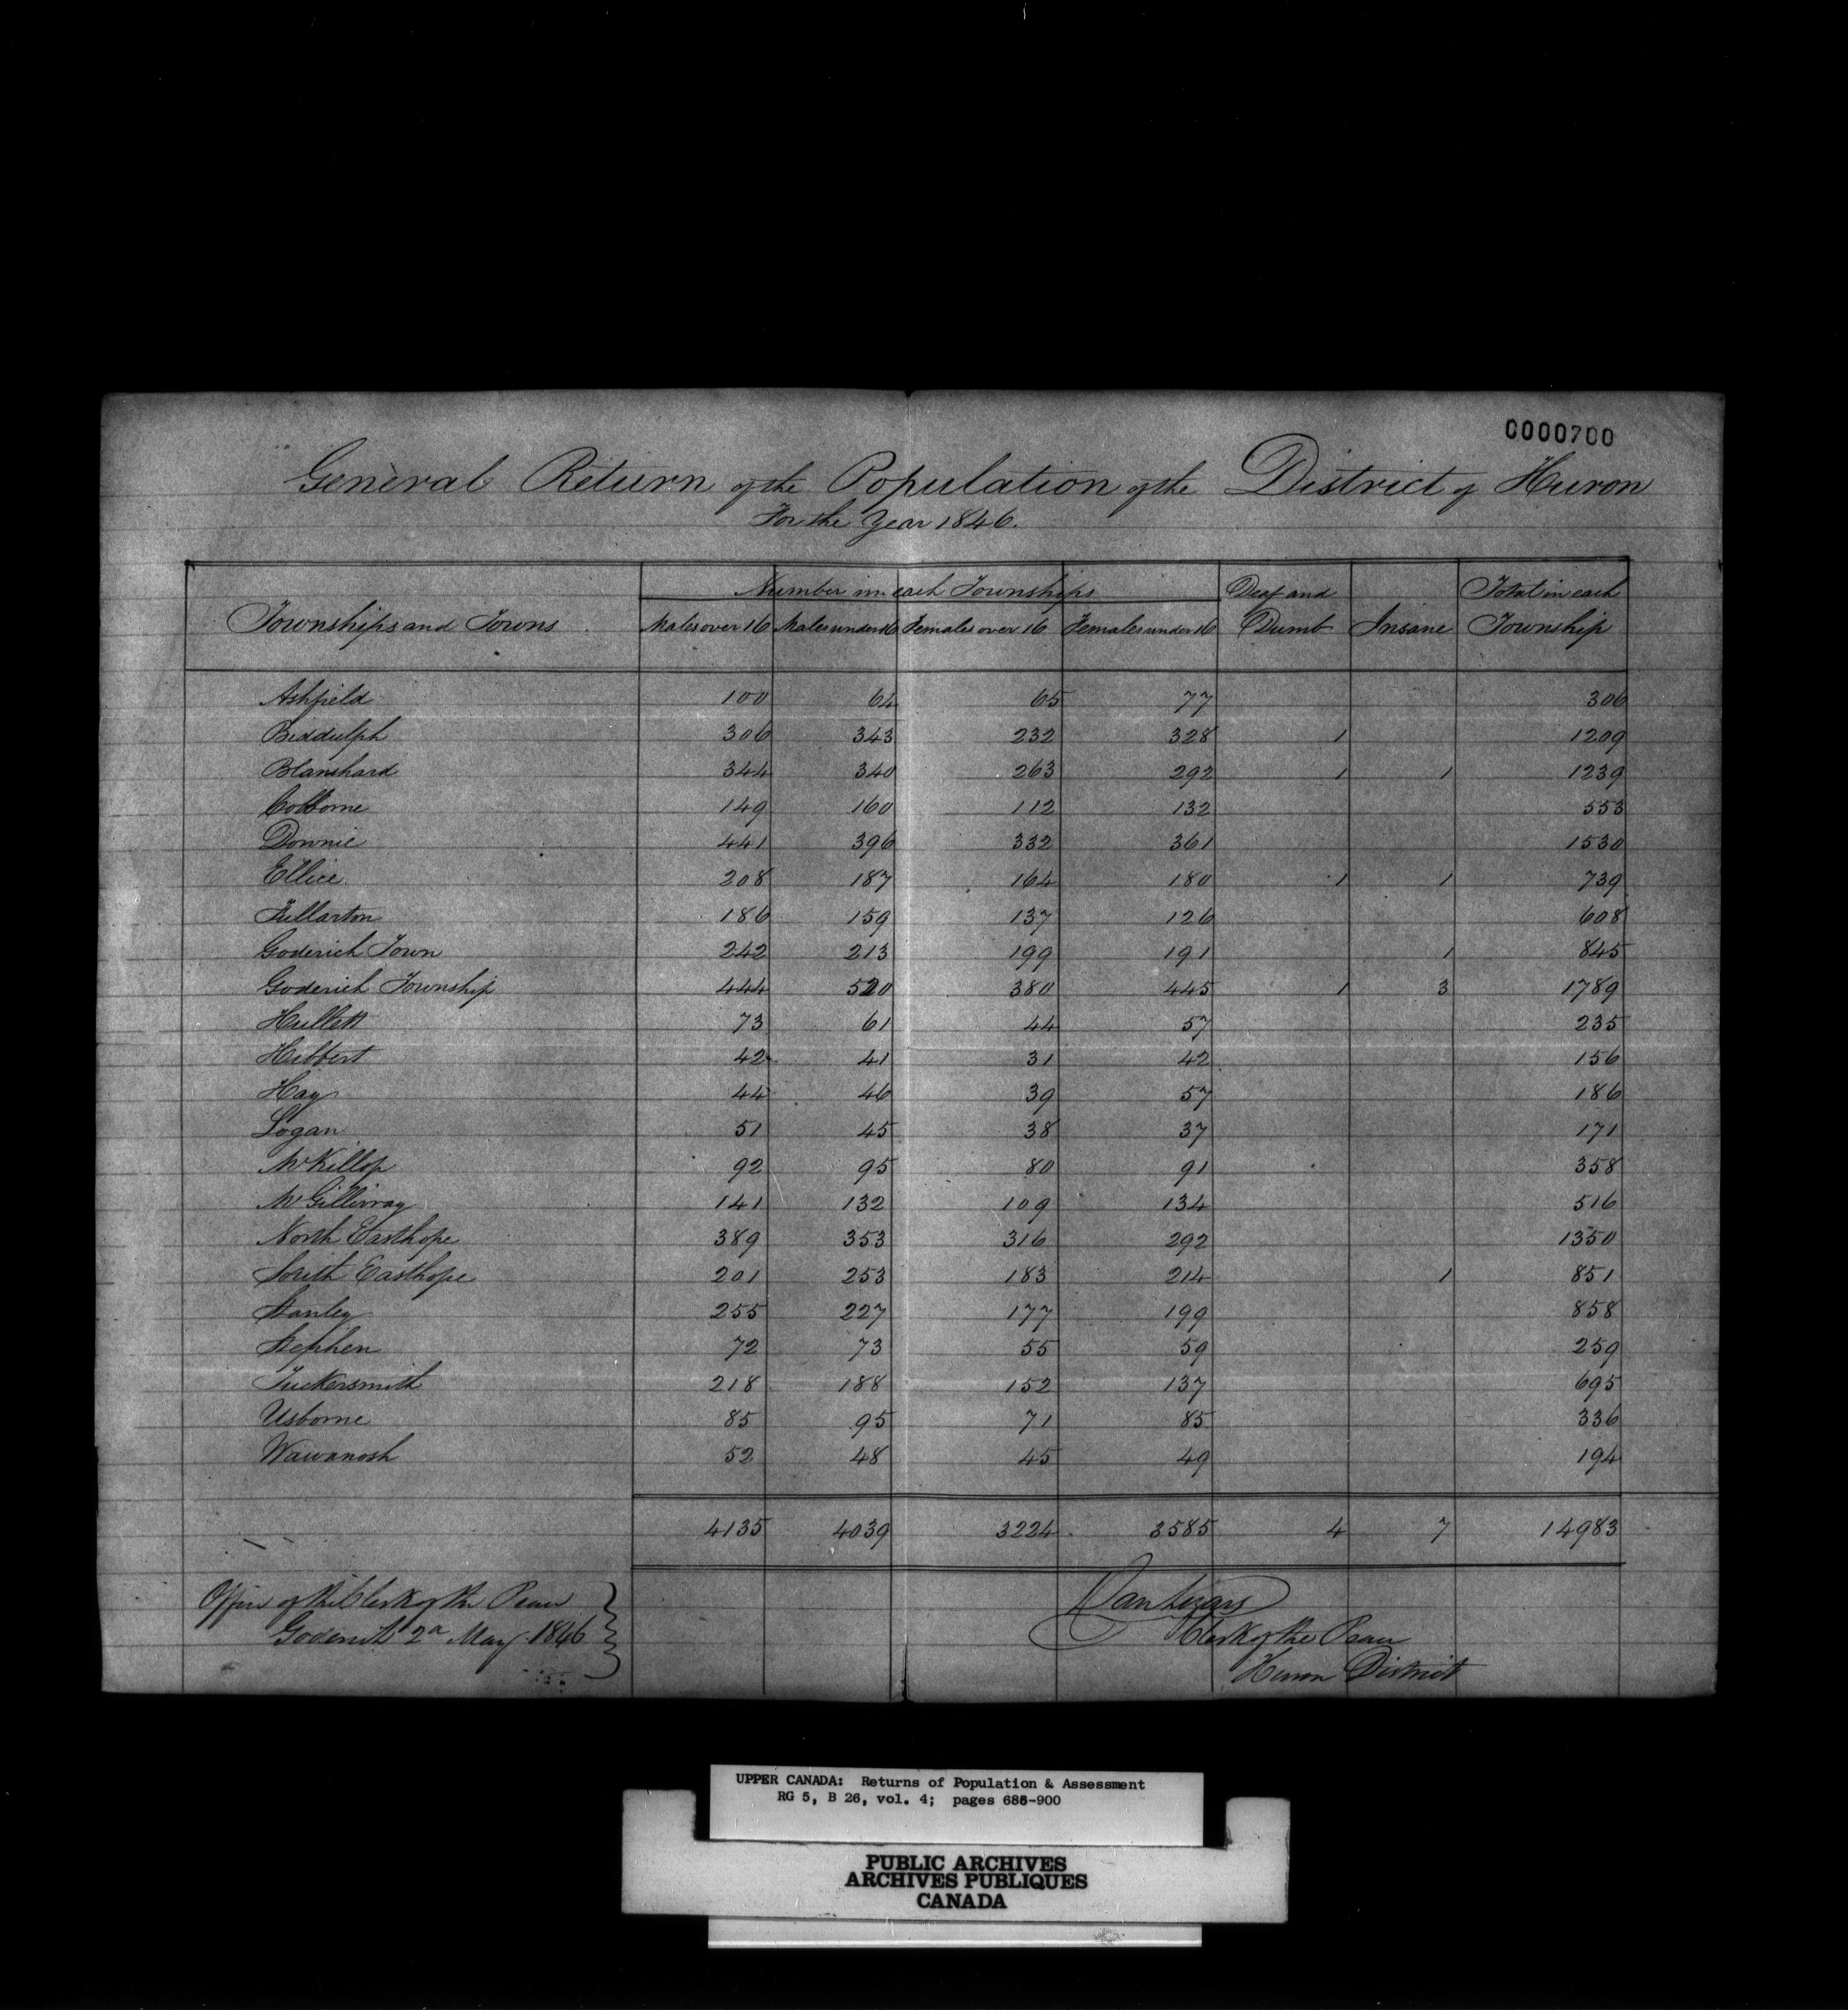 0000700
General Return of the Population of the District of Huron
For the Year 1846.
Number in each Townships
Townships and Towns Males over 16 Males under 16 Females over 16 Females under 16 Deaf and Dumb Insane Total in each Township
Ashfield 100 64 65 77 306
Biddulph 306 343 232 328 1 1209
Blanshard 344 340 263 292 1 1 1239
Colborne 149 160 112 132 553
Downie 441 396 332 361 1530
Ellice 208 187 164 180 1 1 739
Fullarton 186 159 137 126 608
Goderich Town 242 213 199 191 1 845
Goderich Township 444 520 380 445 1 3 1789
Hullett 73 61 44 57 235
Hibbert 42 41 31 42 156
Hay 44 46 39 57 186
Logan 51 45 38 37 171
McKillop 92 95 80 91 358
McGillivray 141 132 109 134 516
North Easthope 389 353 316 292 1350
South Easthope 201 253 183 214 1 851
Stanley 255 227 177 199 858
Stephen 72 73 55 59 259
Tuckersmith 218 188 152 137 695
Usborne 85 95 71 85 336
Wawanosh 52 48 45 49 194
4135 4039 3224 3585 4 7 14983
Office of the Clerk of the Peace
Goderich 2d May 1846
Dan Lizars
Clerk of the Peace
Huron District
UPPER CANADA: Returns of Population & Assessment
RG 5, B 26, vol. 4; pages 686-900
PUBLIC ARCHIVES
ARCHIVES PUBLIQUES
CANADA